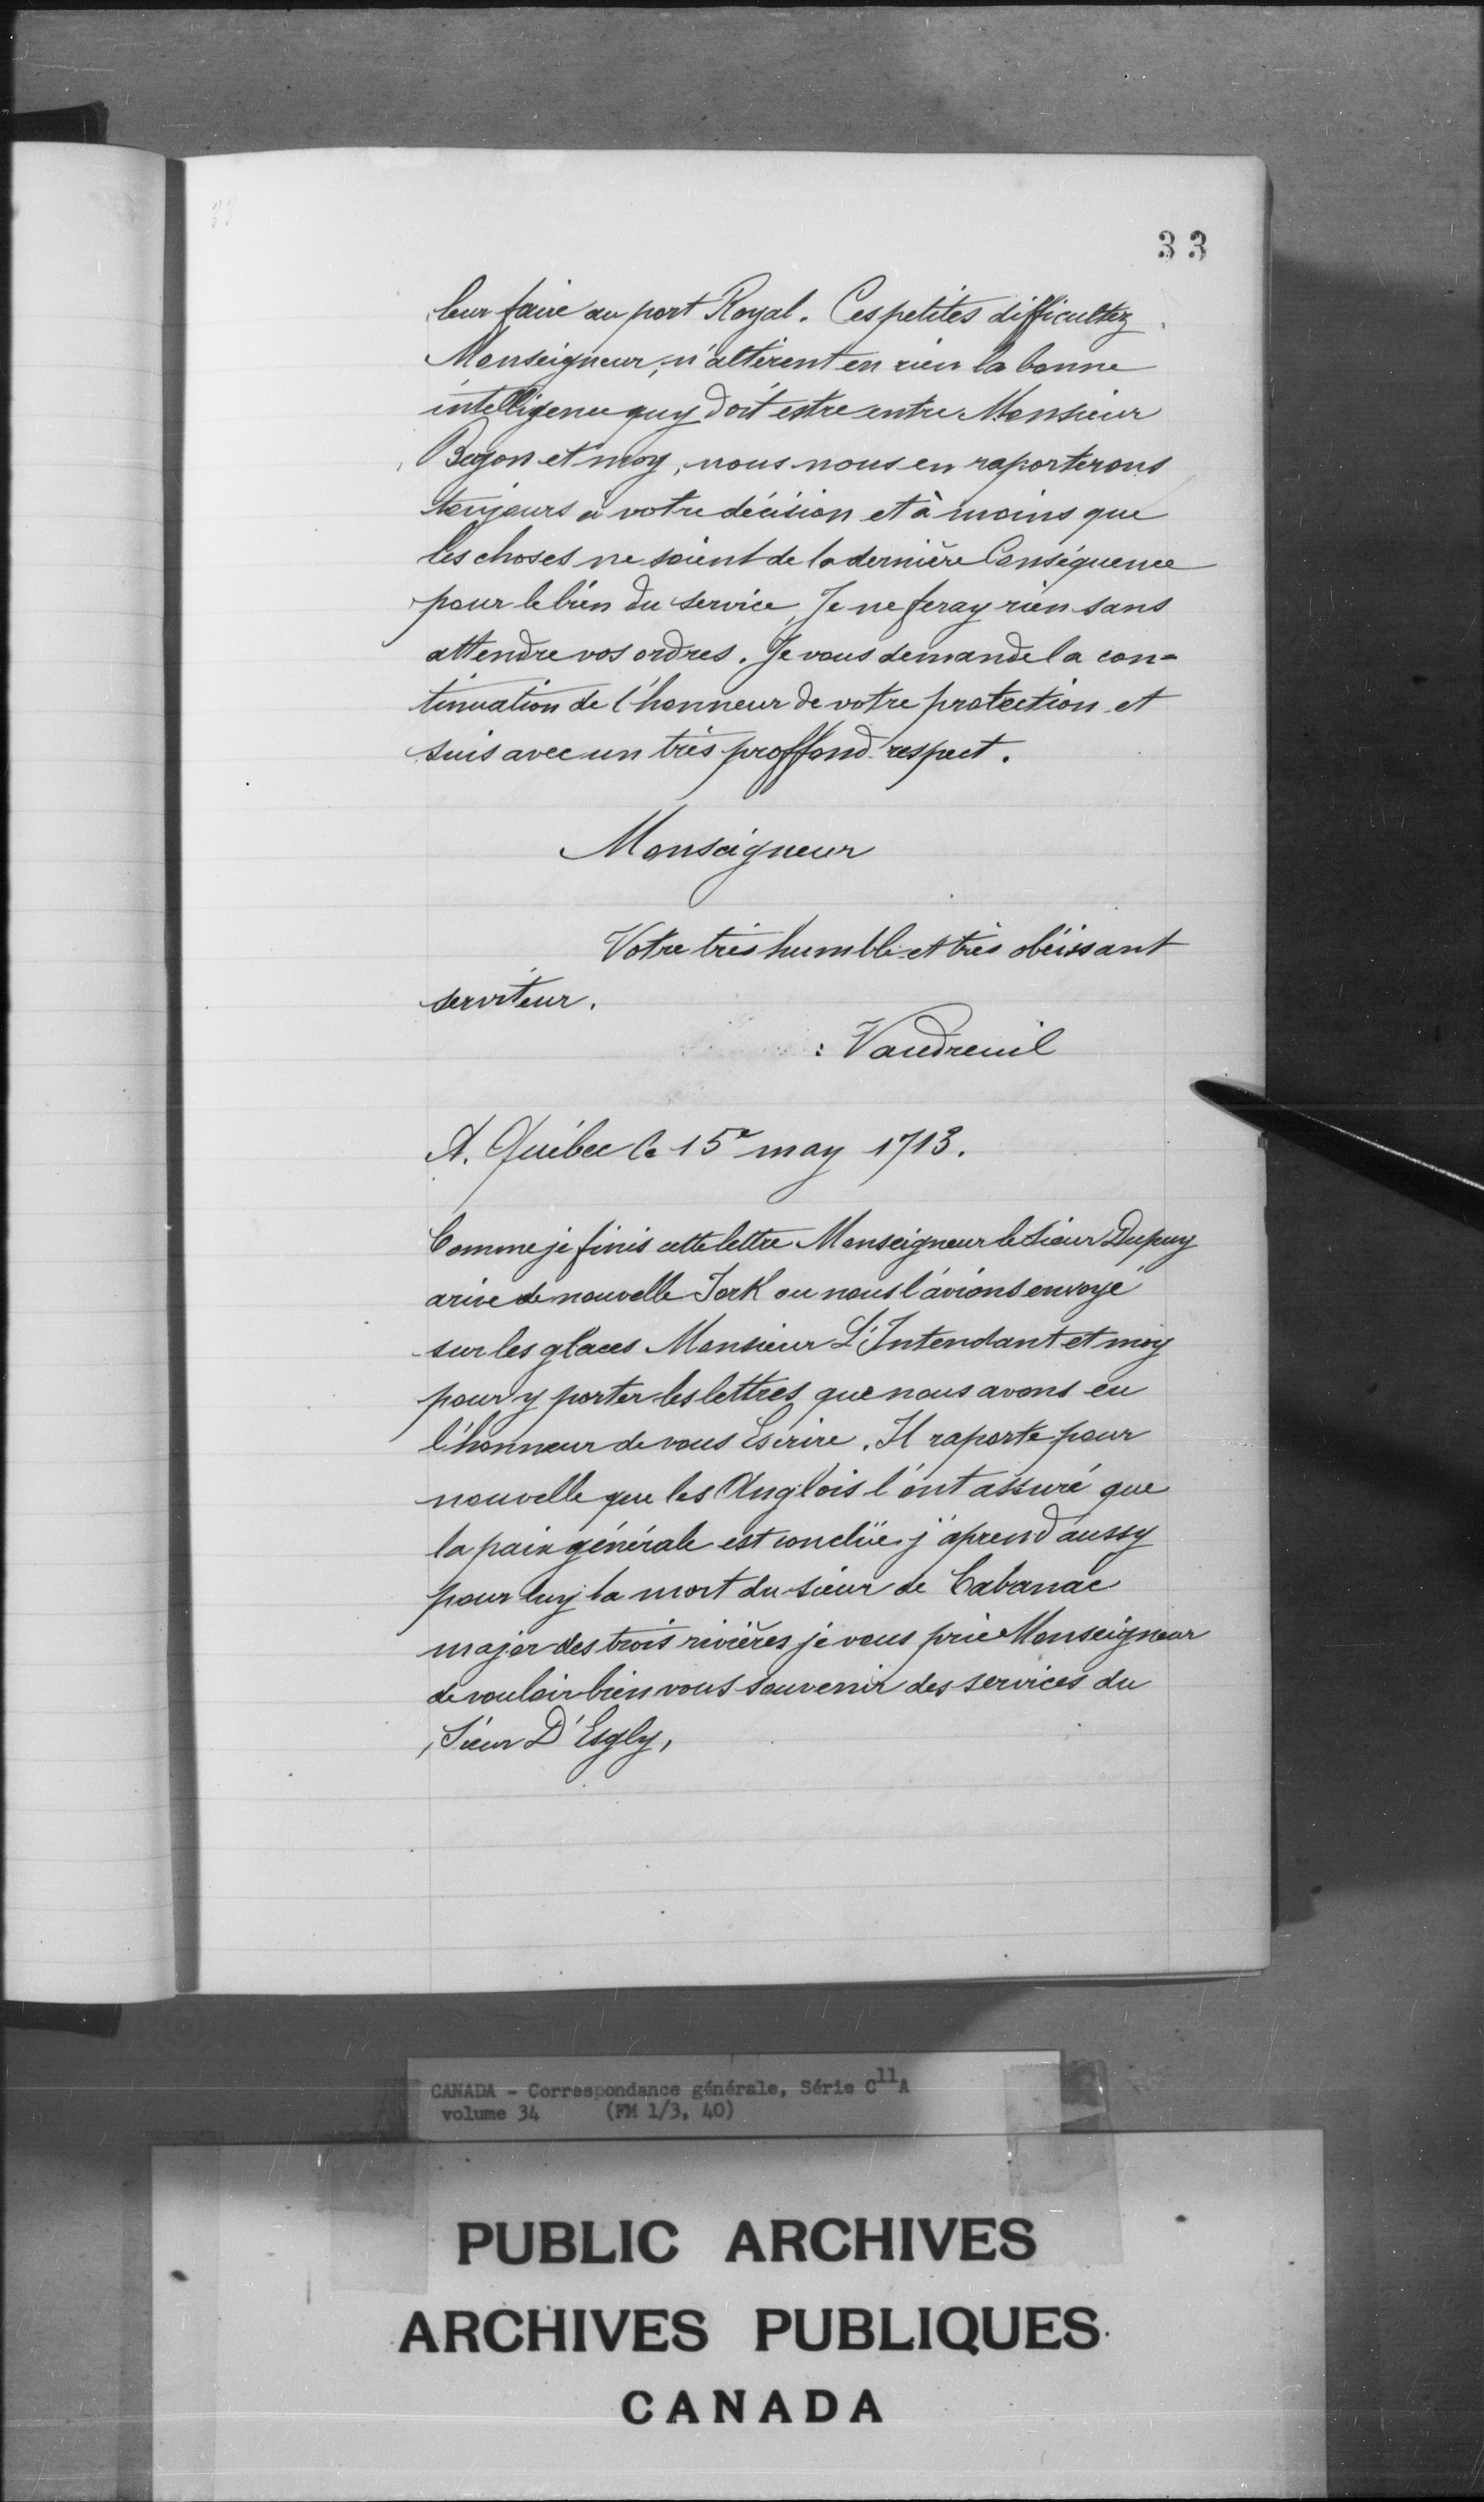 33
leur faire au port Royal. Ces petites difficultez
Monseigneur, n'altèrent en rien la bonne
intelligence quy doit estre entre Monsieur
Begon et moy, nous nous en raporterons
toujours à votre décision et à moins que
les choses ne soient de la dernière Conséquence
pour le bien du service, Je ne feray rien sans
attendre vos ordres. Je vous demande la con=
tinuation de l'honneur de votre protection et
suis avec un très proffond respect.
Monseigneur
Votre très humble et très obéissant
serviteur.
: Vaudreuil
A. Québec le 15e may 1713.
Comme je finis cette lettre Monseigneur le Sieur Dupuy
arive de nouvelle York ou nous l'avions envoyé
sur les glaces Monsieur L'Intendant et moy
pour y porter les lettres que nous avons eu
l'honneur de vous Escrire. Il raporte pour
nouvelle que les Anglois l'ont assuré que
la paix générale est conclüe j'aprend aussy
pour luy la mort du sieur de Cabanac
major des trois rivières je vous prie Monseigneur
de vouloir bien vous souvenir des services du
Sieur D'Esgly,
CANADA - Correspondance générale, Série C11A
volume 34 (FM 1/3, 40)
PUBLIC ARCHIVES
ARCHIVES PUBLIQUES
CANADA